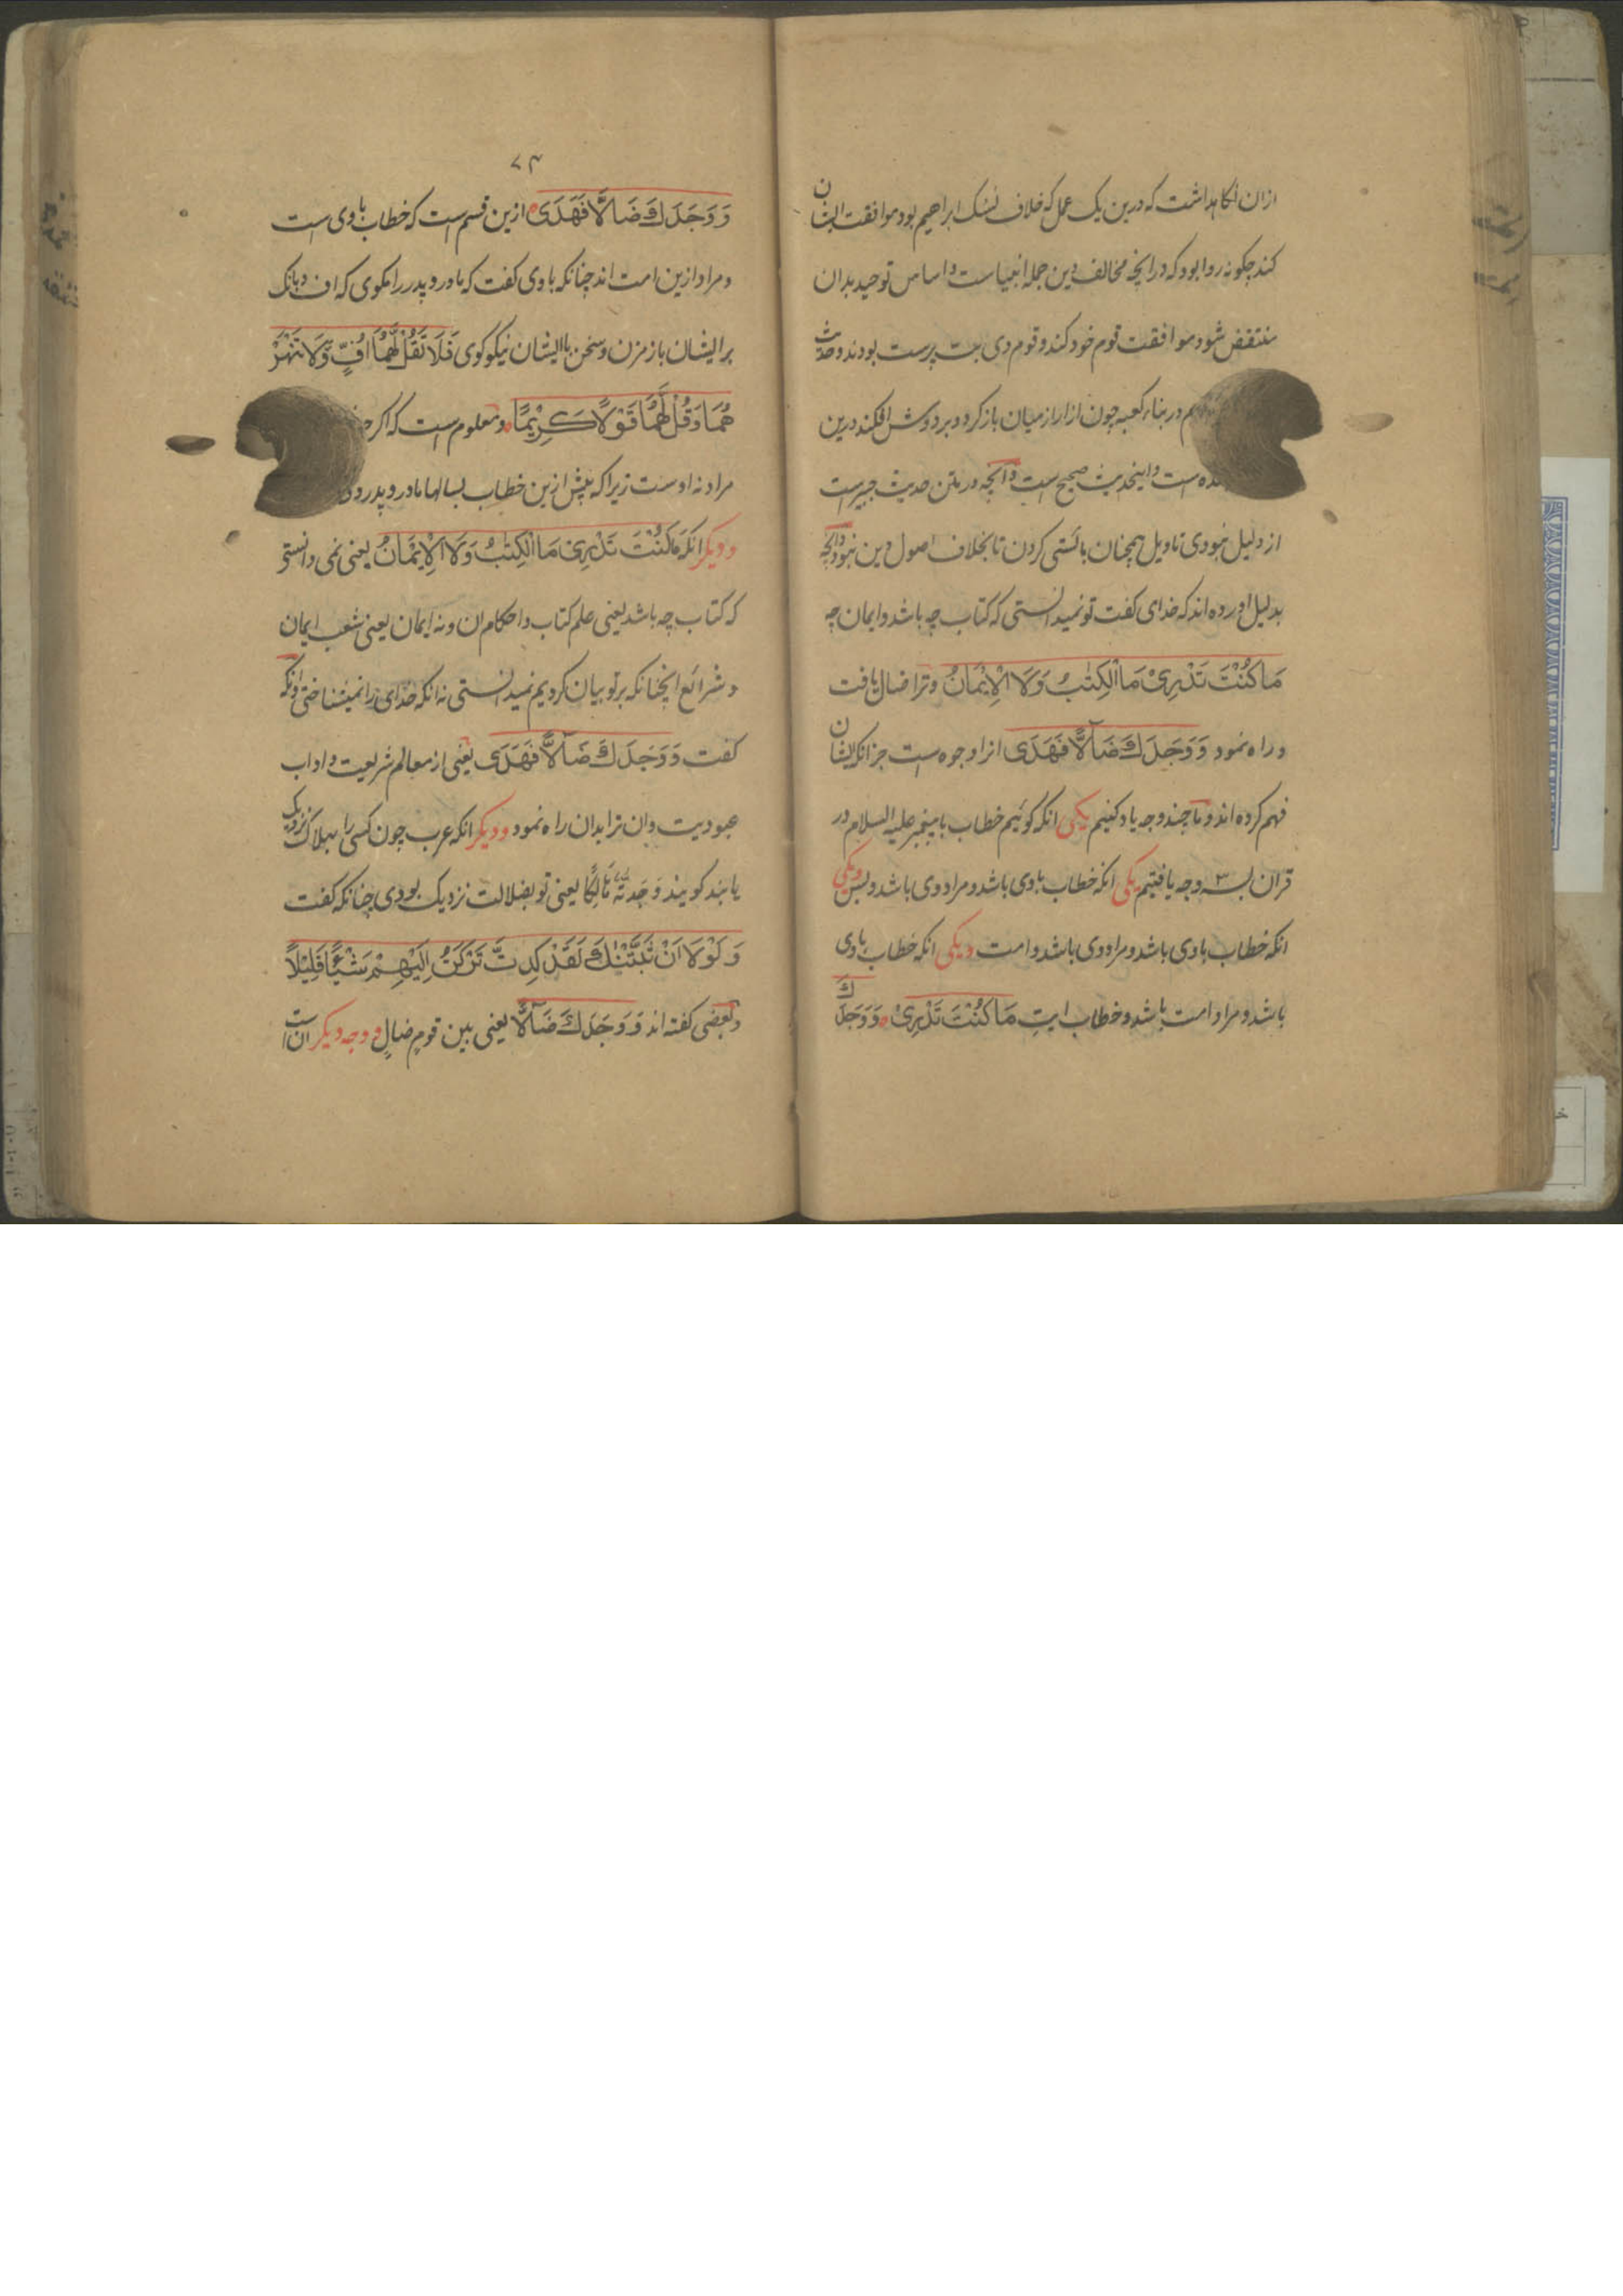 ازان نکاهداشت که درین یک عمل که خلاف نسک ابراهیم بود موافقت ایشان
کند چکونه روا بود که درانچه مخالف دین جمله انبیاست و اساس توحید بدان
منتقض شود موافقت قوم خود کند و قوم وی بت پرست بودند و حدیث
در بناء کعبه چون ازار از میان باز کرد و بر دوش افکند درین
است و اینحدیث صحیح است و آنچه در متن حدیث جبیر است
از دلیل نبودی تاویل همچنان بائستی کردن تا بخلاف اصول دین نبود و آنچه
بدلیل اورده اند که خدای کفت تو نمیدانستی که کتاب چه باشد و ایمان چه
مَا كُنْتَ تَدْرِيْ مَا الْكِتٰبُ وَلَا الْاِيْمَانُ وترا ضال یافت
و راه نمود وَوَجَدَكَ ضَآلًّا فَهَدَى انرا وجوه است جز انکه ایشان
فهم کرده اند و ما چند وجه یاد کنیم یکی انکه کوئیم خطاب با پیغمبر علیه السلام در
قران بسه وجه یافتیم یکی انکه خطاب باوی باشد و مراد وی باشد و بس و یکی
انکه خطاب باوی باشد و مراد وی باشد و امت و یکی انکه خطاب باوی
باشد و مراد امت باشد و خطاب ایت مَا كُنْتَ تَدْرِيْ وَوَجَدَكَ
۷۴
وَوَجَدَكَ ضَالًّا فَهَدَى ازین قسم است که خطاب باوی است
و مراد ازین امت اند چنانکه باوی کفت که مادر و پدر را مکوی که اف و بانک
بر ایشان باز مزن و سخن با ایشان نیکو کوی فَلَا تَقُلْ لَهُمَا اُفٍّ وَّلَا تَنْهَرْ
هُمَا وَقُلْ لَهُمَا قَوْلًا كَرِيْمًا و معلوم است که اکر
مراد نه اوست زیرا که پیش ازین خطاب بسالها مادر و پدر
و دیکر انکه مَا كُنْتَ تَدْرِيْ مَا الْكِتٰبُ وَلَا الْاِيْمَانُ یعنی نمی دانستی
که کتاب چه باشد یعنی علم کتاب و احکام ان و نه ایمان یعنی شعب ایمان
و شرائع انچنانکه بر تو بیان کردیم نمیدانستی نه انکه خدای را نمیشناختی و انکه
کفت وَوَجَدَكَ ضَآلًّا فَهَدَى یعنی از معالم شریعت و اداب
عبودیت وان ترا بدان راه نمود و دیکر انکه عرب چون کسی را بهلاک نزدیک
یابند کویند وَجَدتُهُ هَالِكًا یعنی تو بضلالت نزدیک بودی چنانکه کفت
وَلَوْلَا اَنْ ثَبَّتْنٰكَ لَقَدْ كِدتَّ تَرْكَنُ اِلَيْهِمْ شَيْئًا قَلِيْلًا
و بعضی کفته اند وَوَجَدَكَ ضَآلًّا یعنی بین قومٍ ضالٍ و وجه دیکر ان است